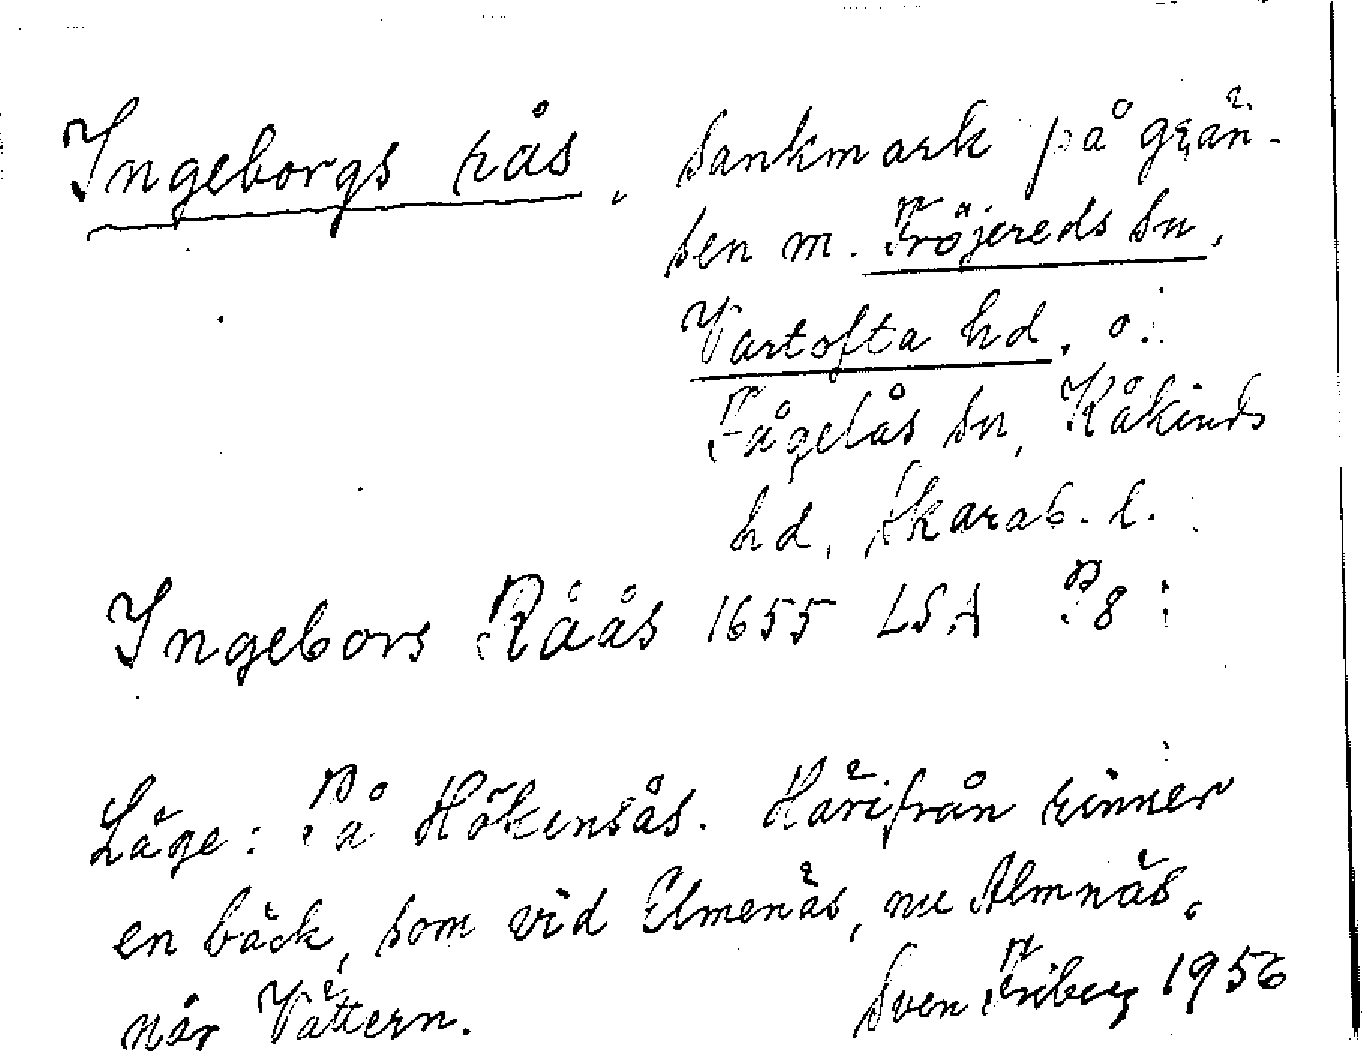 Ingeborgs rås, sankmark på grän-
sen m. Fröjereds sn,
Vartofta hd, o.
Fågelås sn, Kåkinds
hd, Skarab. l.
Ingebors Råås 1655 LSA P8:
Läge: På Hökensås. Härifrån rinner
en bäck, som vid Elmenäs, nu Almnäs,
når Vättern.
Sven Friberg 1956